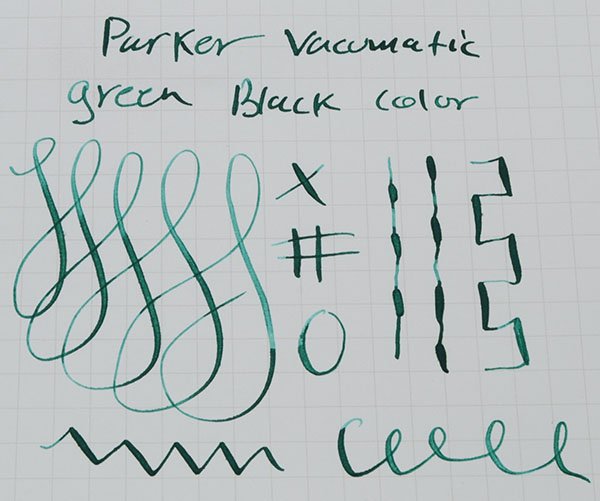 Parker Vacumatic
green Black color
X
#
O